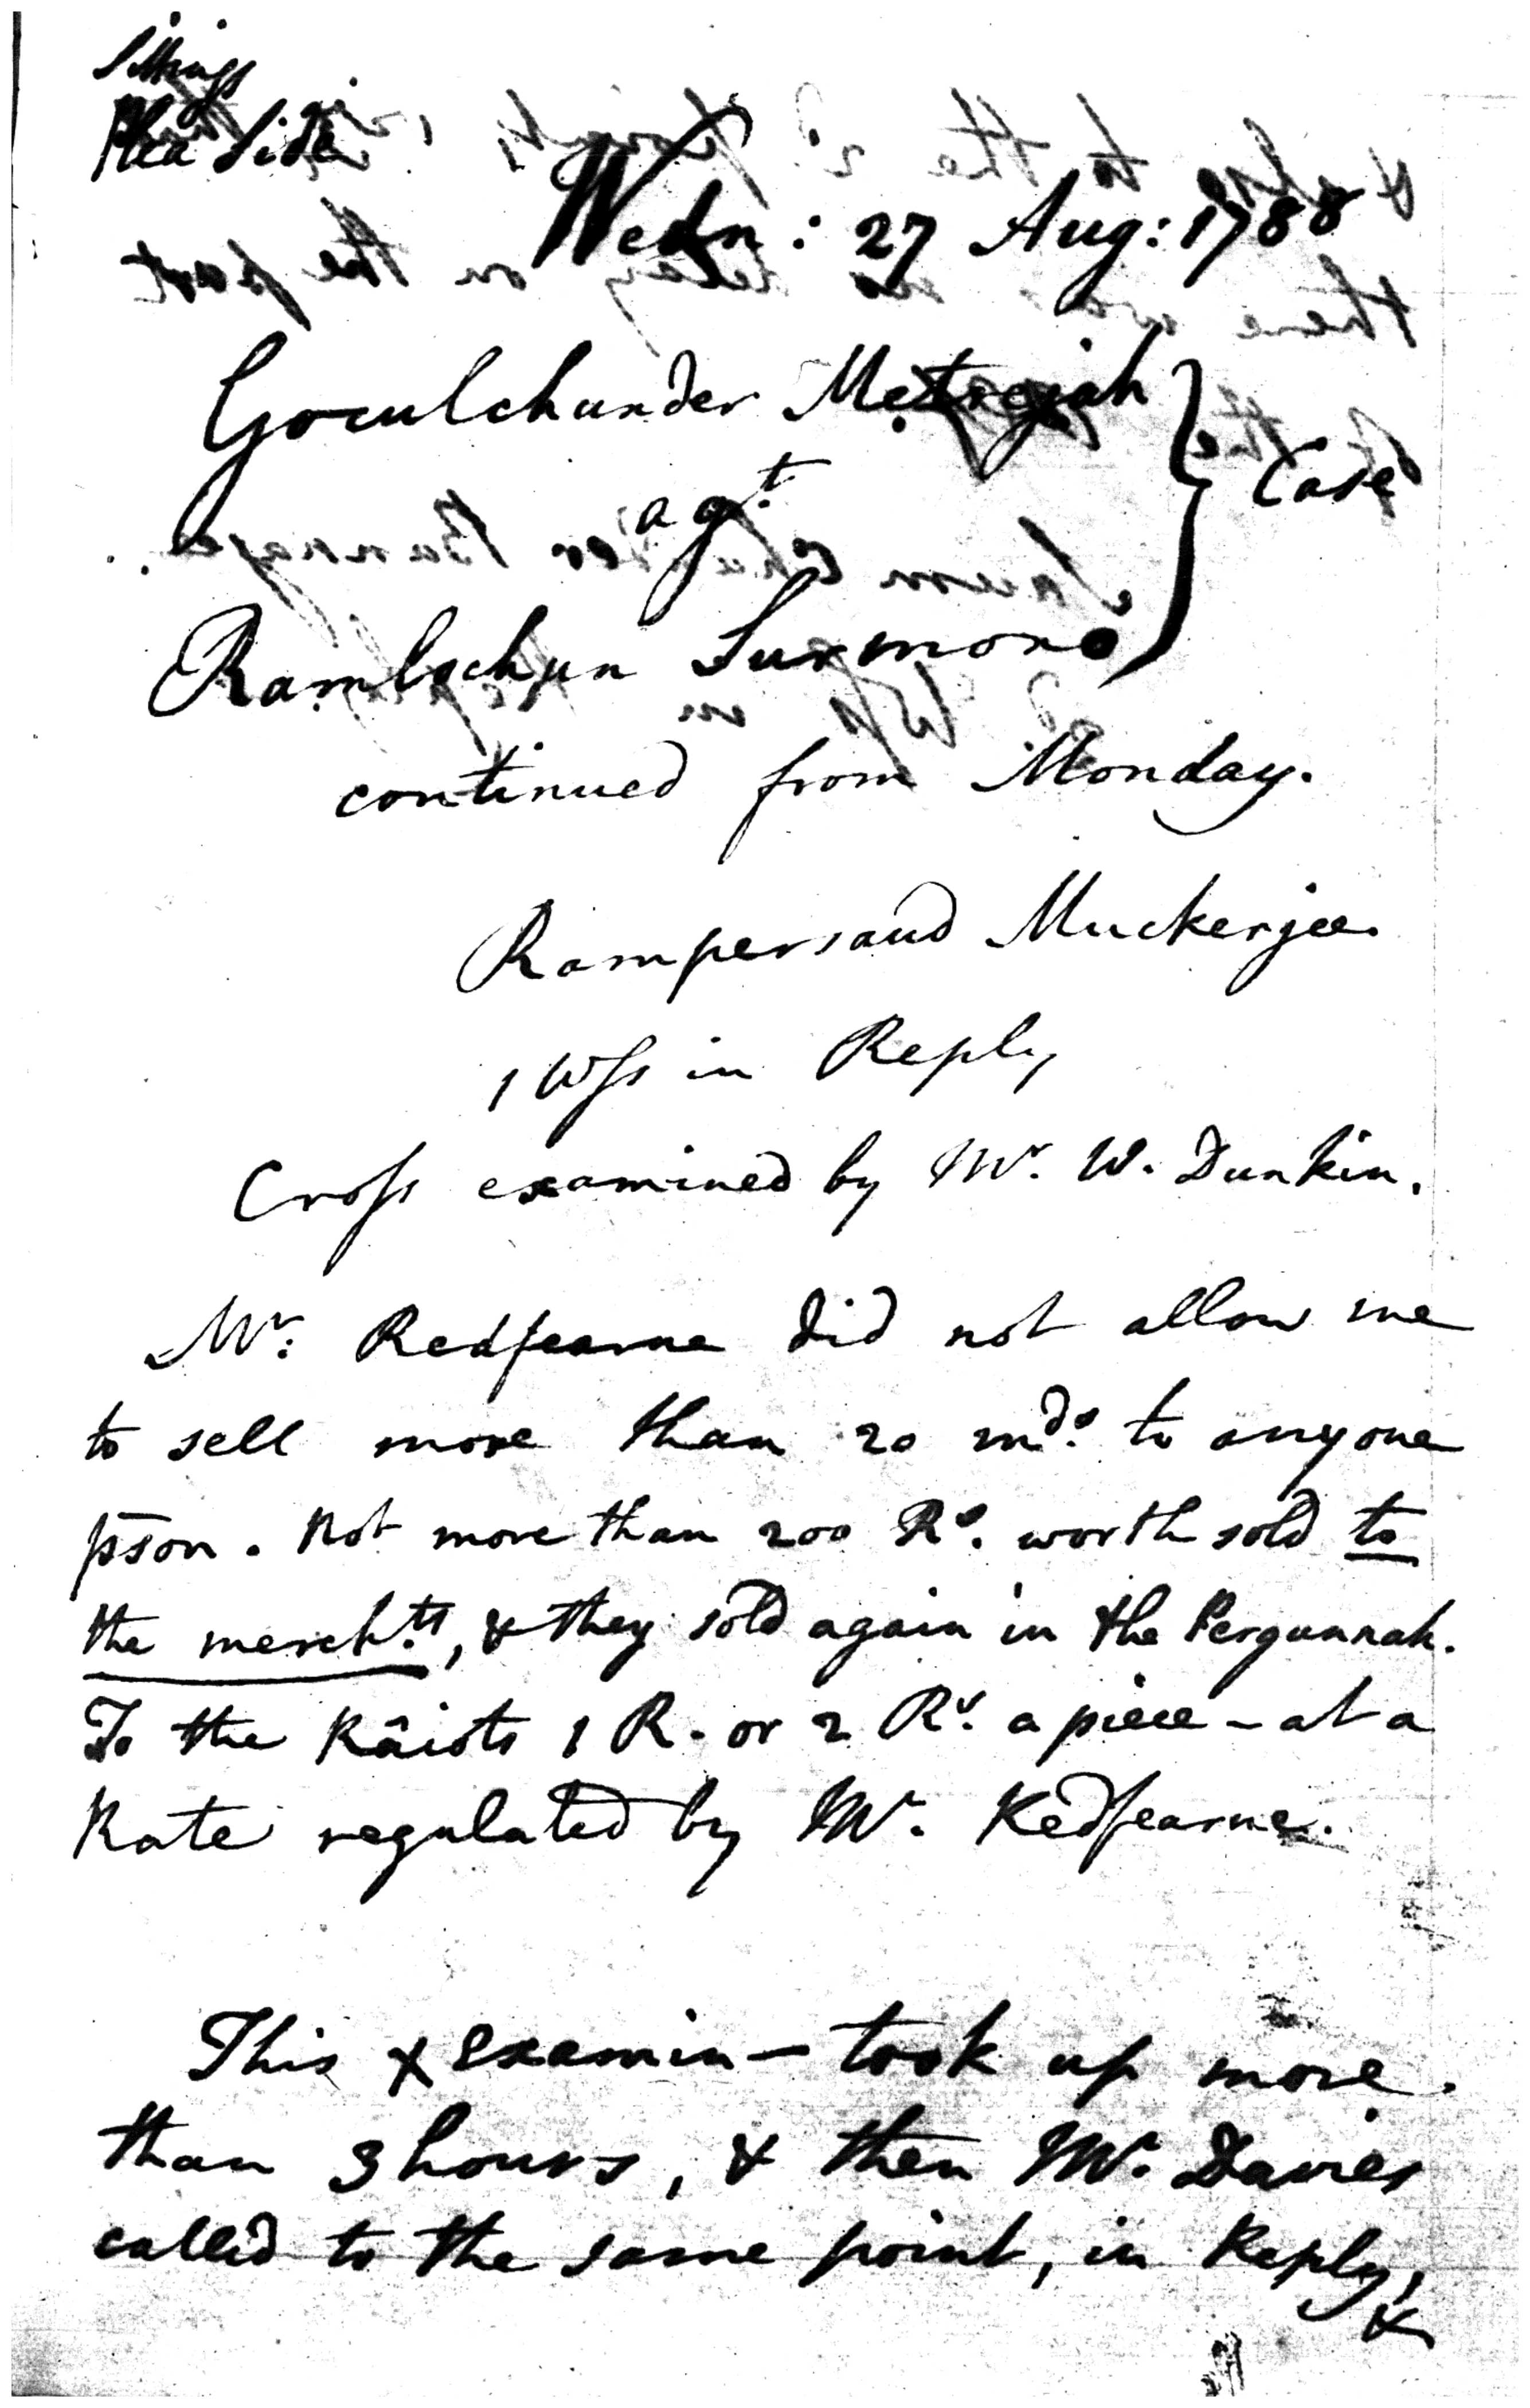 Sittings
Plea Side
Wedn: 27 Aug: 1788
Goculchunder
agt.
Case
Ramlochun Surmono
continued from Monday.
Rampersaud Muckerjee.
1 Wſs in Reply
Croſs examined by Mr. W. Dunkin.
Mr: Redfearne did not allow me
to sell more than 20 mds. to any one
p̄son. Not more than 200 Rs. worth sold to
the merchts., & they sold again in the Pergunnah.
To the Râiots 1 R. or 2 Rs. a piece – at a
Rate regulated by Mr. Redfearne.
This x examin– took up more
than 3 hours, & then Mr. Davies
called to the same point, in Reply,
&